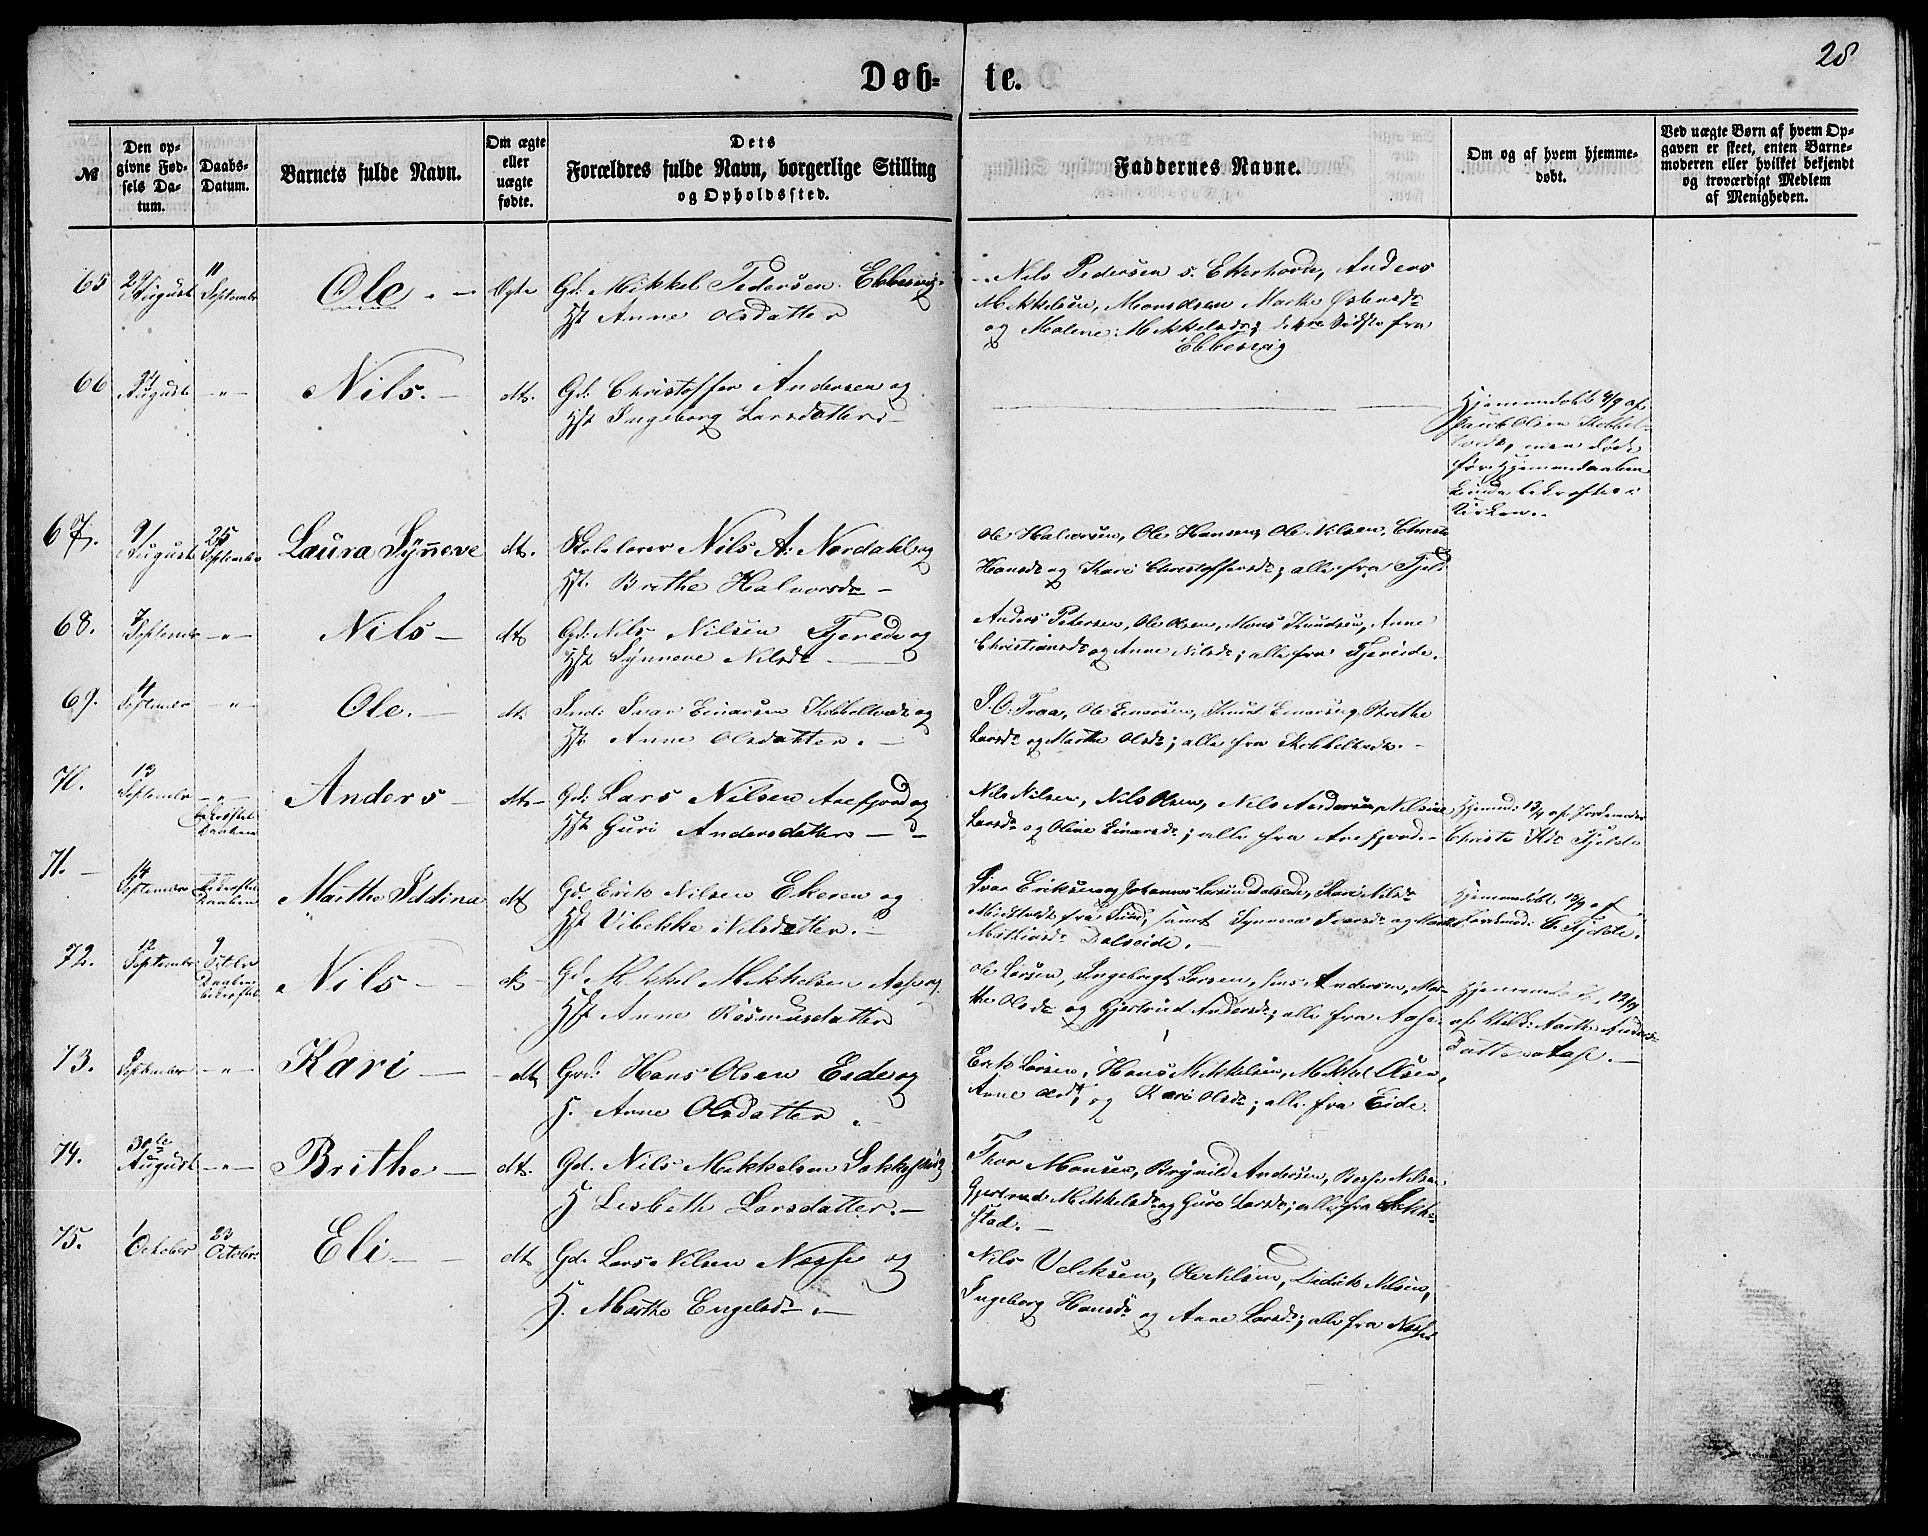 28
Døb= te.
№
Den op-
givne Fød-
sels Da-
tum.
Daabs-
Datum.
Barnets fulde Navn.
Om ægte
eller
uægte
fødte.
Dets
Forældres fulde Navn, borgerlige Stilling
og Opholdssted.
Faddernes Navne.
Om og af hvem hjemme-
døbt.
Ved uægte Børn af hvem Op-
gaven er skeet, enten Barne-
moderen eller hvilket bekjendt
og troværdigt Medlem
af Menigheden.
65
August
11
September
Ole
Ægte
Gd. Mikkel Pedersen Ebbesvig
Hst Anne Olsdatter
Nils Pedersen s. Ekerhovde, Anders
Mikkelsen, Monsdsen Marthe
og Malene Mikkelsdr; de sidste fra
Ebbesvig
66
August
"
Nils.
dt.
Gd. Christoffer Andersen og
Hst Ingeborg Larsdatter
Hjemmedøbt 4/9 af
Knut Olsen
men døde
før Hjemmedaaben
kunde bekræftes i
Kirken.
67.
9/
August
25
September
Laura Synneve
dt.
Skolelærer Nils A. Nordahl og
Hst. Brithe Halvorsdr
Ole Halvorsen, Ole Hansen, Ole Nilsen, Christi
Hansdr og Kari Christoffersdr; alle fra Fjeld
68.
7
September
"
Nils
dt
Gd. Nils Nilsen Tjereide og
Hst Synneve Nilsdr
Anders Pedersen, Ole Olsen, Mons Knudsen, Anne
Christiansdr og Anne Nilsdr; alle fra Tjereide.
69.
4
September
"
Ole.
dt.
Ind. Ivar Einarsen og
Hst Anne Olsdatter.
P. O. Traa, Ole Einarsen, Knut Einarsen, Brithe
Larsdr og Marthe Olsdr; alle fra
71.
13
September
"
bekræftet
Daaben
Anders
dt
Gd. Lars Nilsen Arefjord og
Hst Guri Andersdatter
Nils Nilsen, Nils Olsen, Nils Andersen, Nilsine
Larsdr og Oline Einarsdr; alle fra Arefjord.
Hjemmed: 13/9 af Jordemoder
Christi Fjelde
71.
14
September
bekræftet
Daaben
Marthe Iddina
dt
Gd. Erik Nilsen Ekeren og
Hst Vibekke Nilsdatter.
Ivar Eriksen og Johannes Larsen Dalseide, Kari Nilsdr
fra Sund, samt Synneva Ivarsdr og
Mathiasdr Dalseide.
Hjemmedøbt af
Jordemod: C. Fjelde.
72.
12
September
9
October
Daaben
bekræftet
Nils
dt
Gd Mikkel Mikkelsen Aase og
Hst Anne Rasmusdatter
Ole Larsen, Ingebrigt Larsen, Jens Andersen, Mar-
the Olsdr og Gjertrud Andersdr; alle fra Aase
Hjemmedøbt 12/9
af Anders-
datter Aase.
73.
9
September
"
Kari
dt
Grd: Hans Olsen Eide og
H. Anne Olsdatter
Erik Larsen, Hans Mikkelsen, Mikkel Olsen,
Anne Olsdr, og Kari Olsdr; alle fra Eide.
74.
30te
August
"
Brithe
dt.
Gd. Nils Mikkelsen
H Lisbeth Larsdatter.
Thor Monsen, Brynild Andersen, Nilsen
Gjertrud Mikkelsdr og Guro Larsdr; alle fra
stad.
75.
1
October
23
October
Eli
dt
Gd. Lars Nilsen Nesse og
H. Marthe Engelsdr.
Nils Veliksen, Ole Nilsen, Didrik Nilsen,
Ingeborg Hansdr og Anne Larsdr; alle fra Nesse